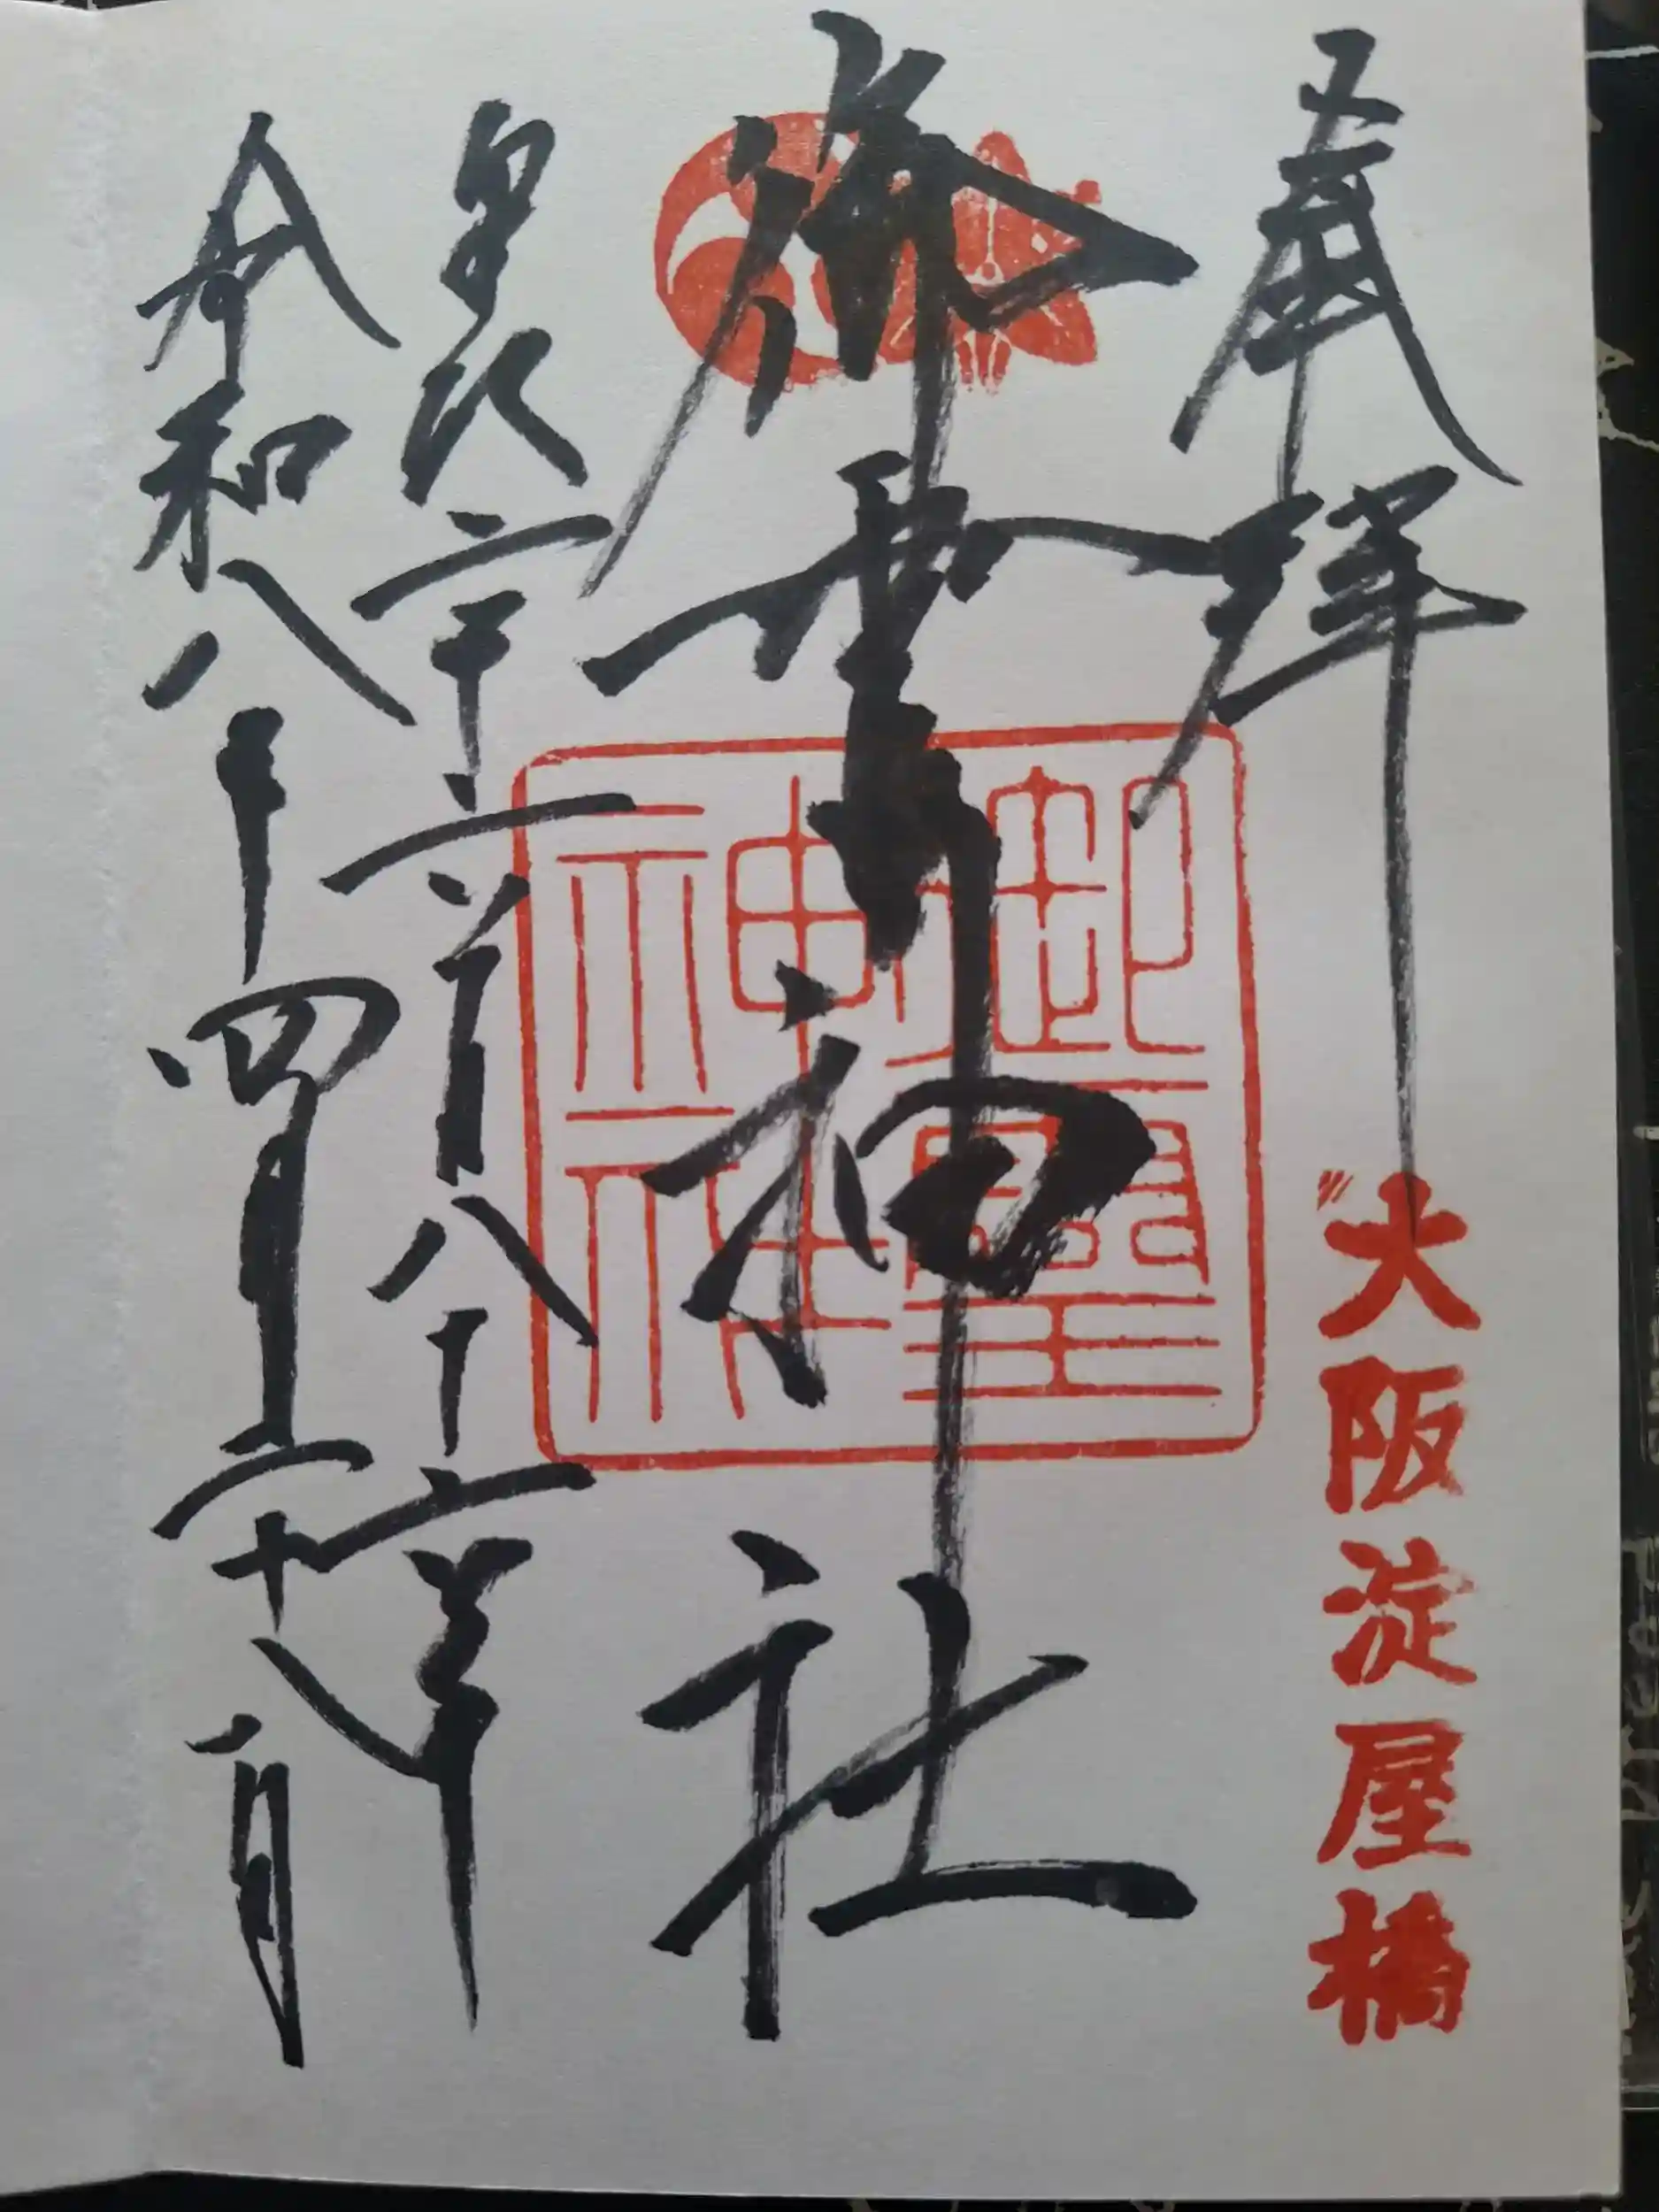 奉拝
大阪淀屋橋
御霊神社
御靈
神社
皇紀二千六百八十六年
令和八年四月二十八日